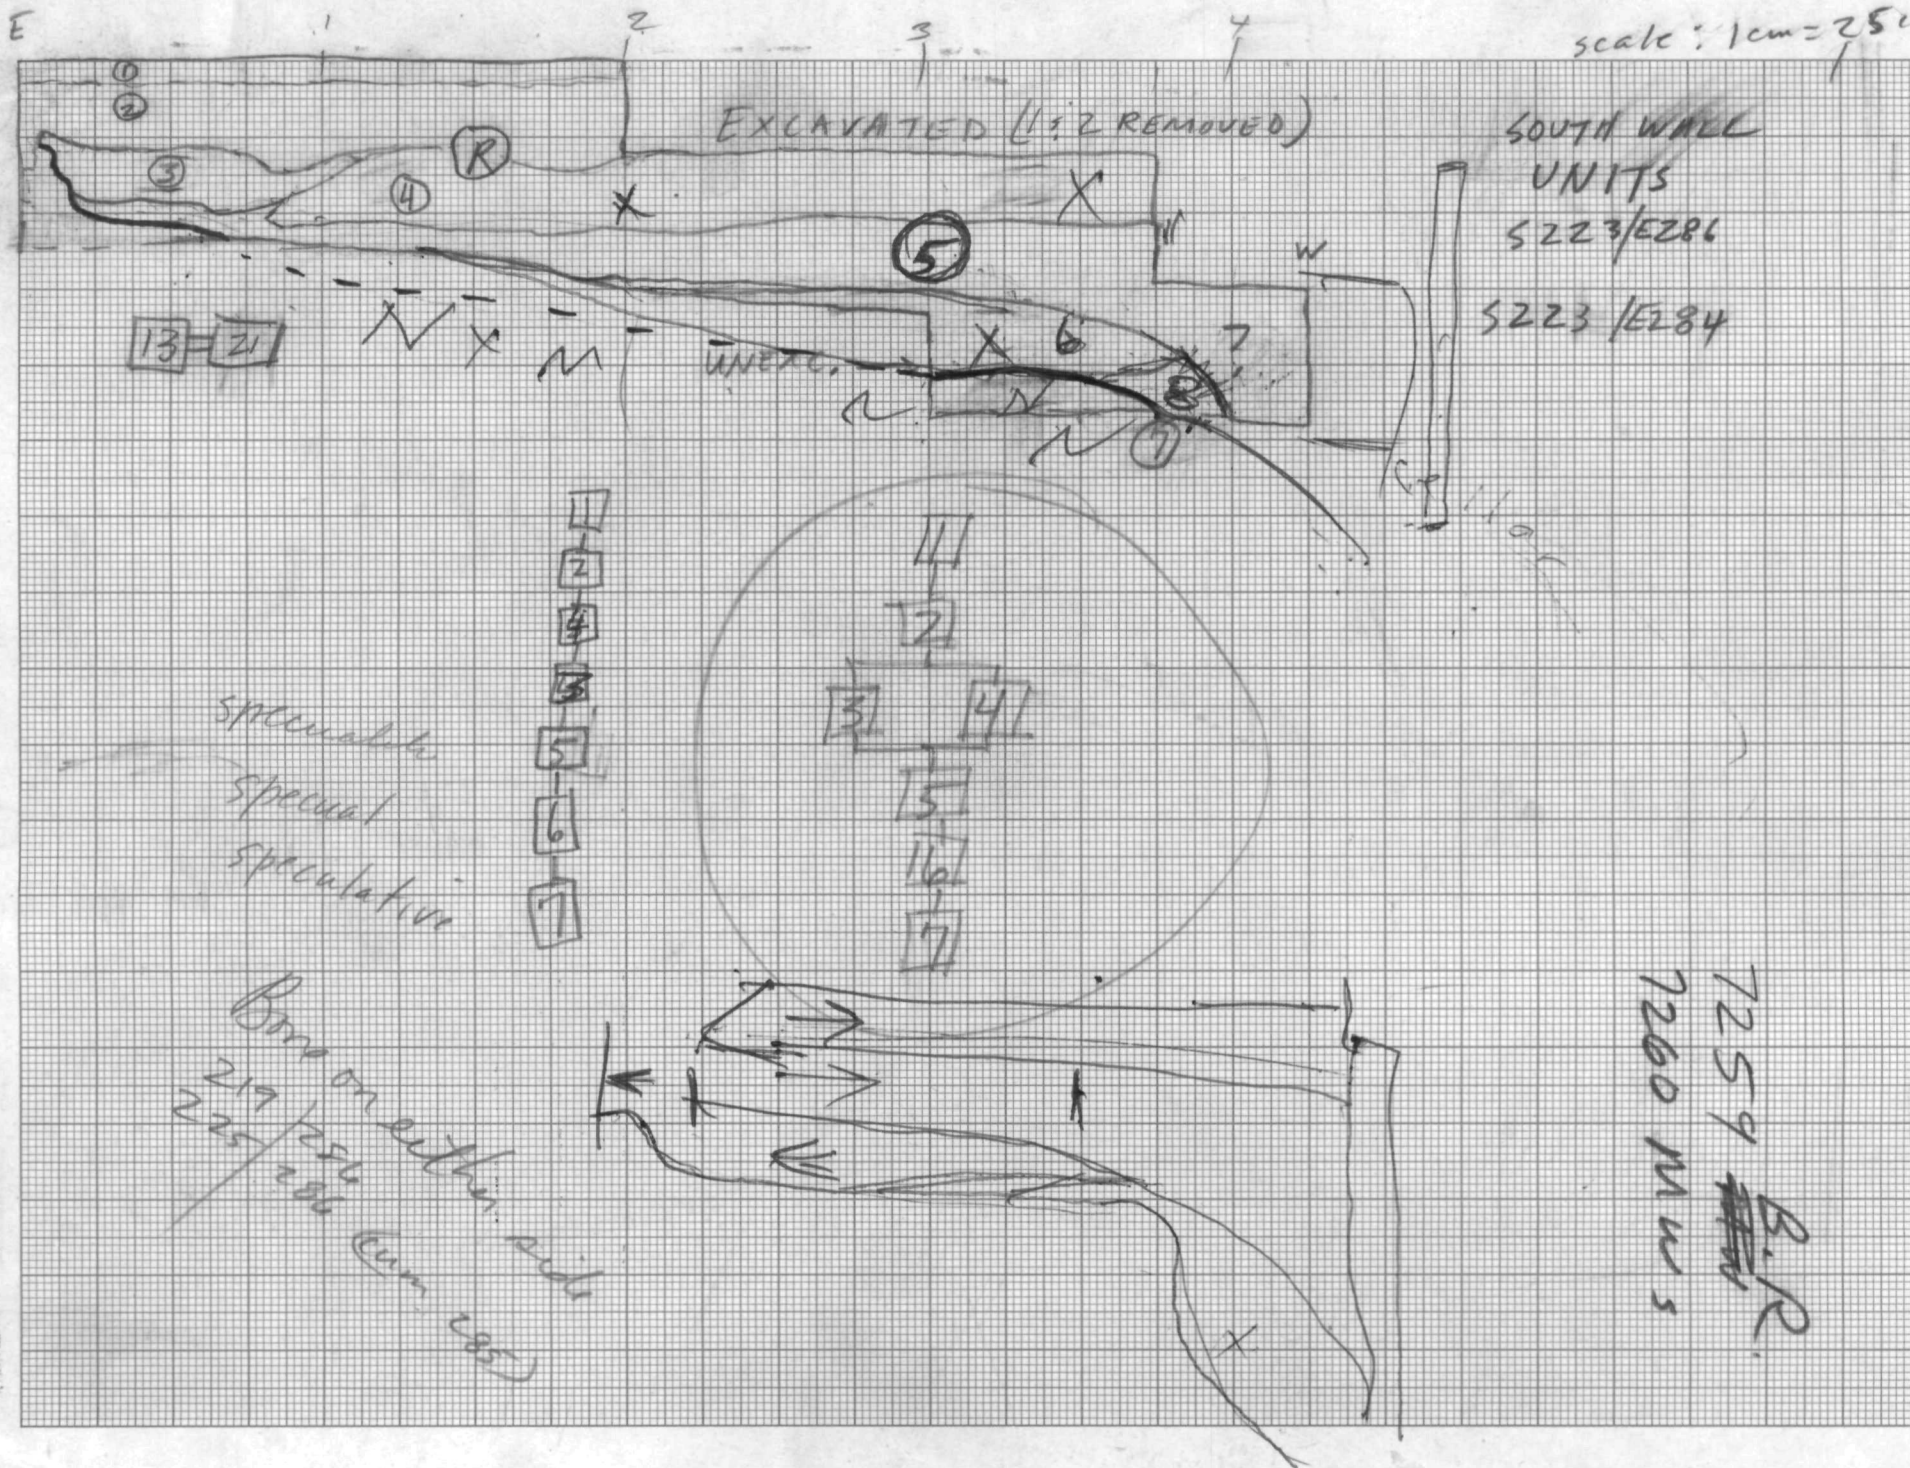 E 1 2 3 4
scale: 1cm = 25c
①
②
EXCAVATED (1 & 2 REMOVED)
SOUTH WALL
UNITS
S223/E286
S223/E284
③
④
R
X
X
5
W
W
13 = 21
X
UNEXC.
X
6
7
8
⑦
1
2
4
3
5
6
7
1
2
3 4
5
6
7
specual
speculative
Bone on either side
219/286
225/286
285)
7259 B.R.
7260 MWS
X